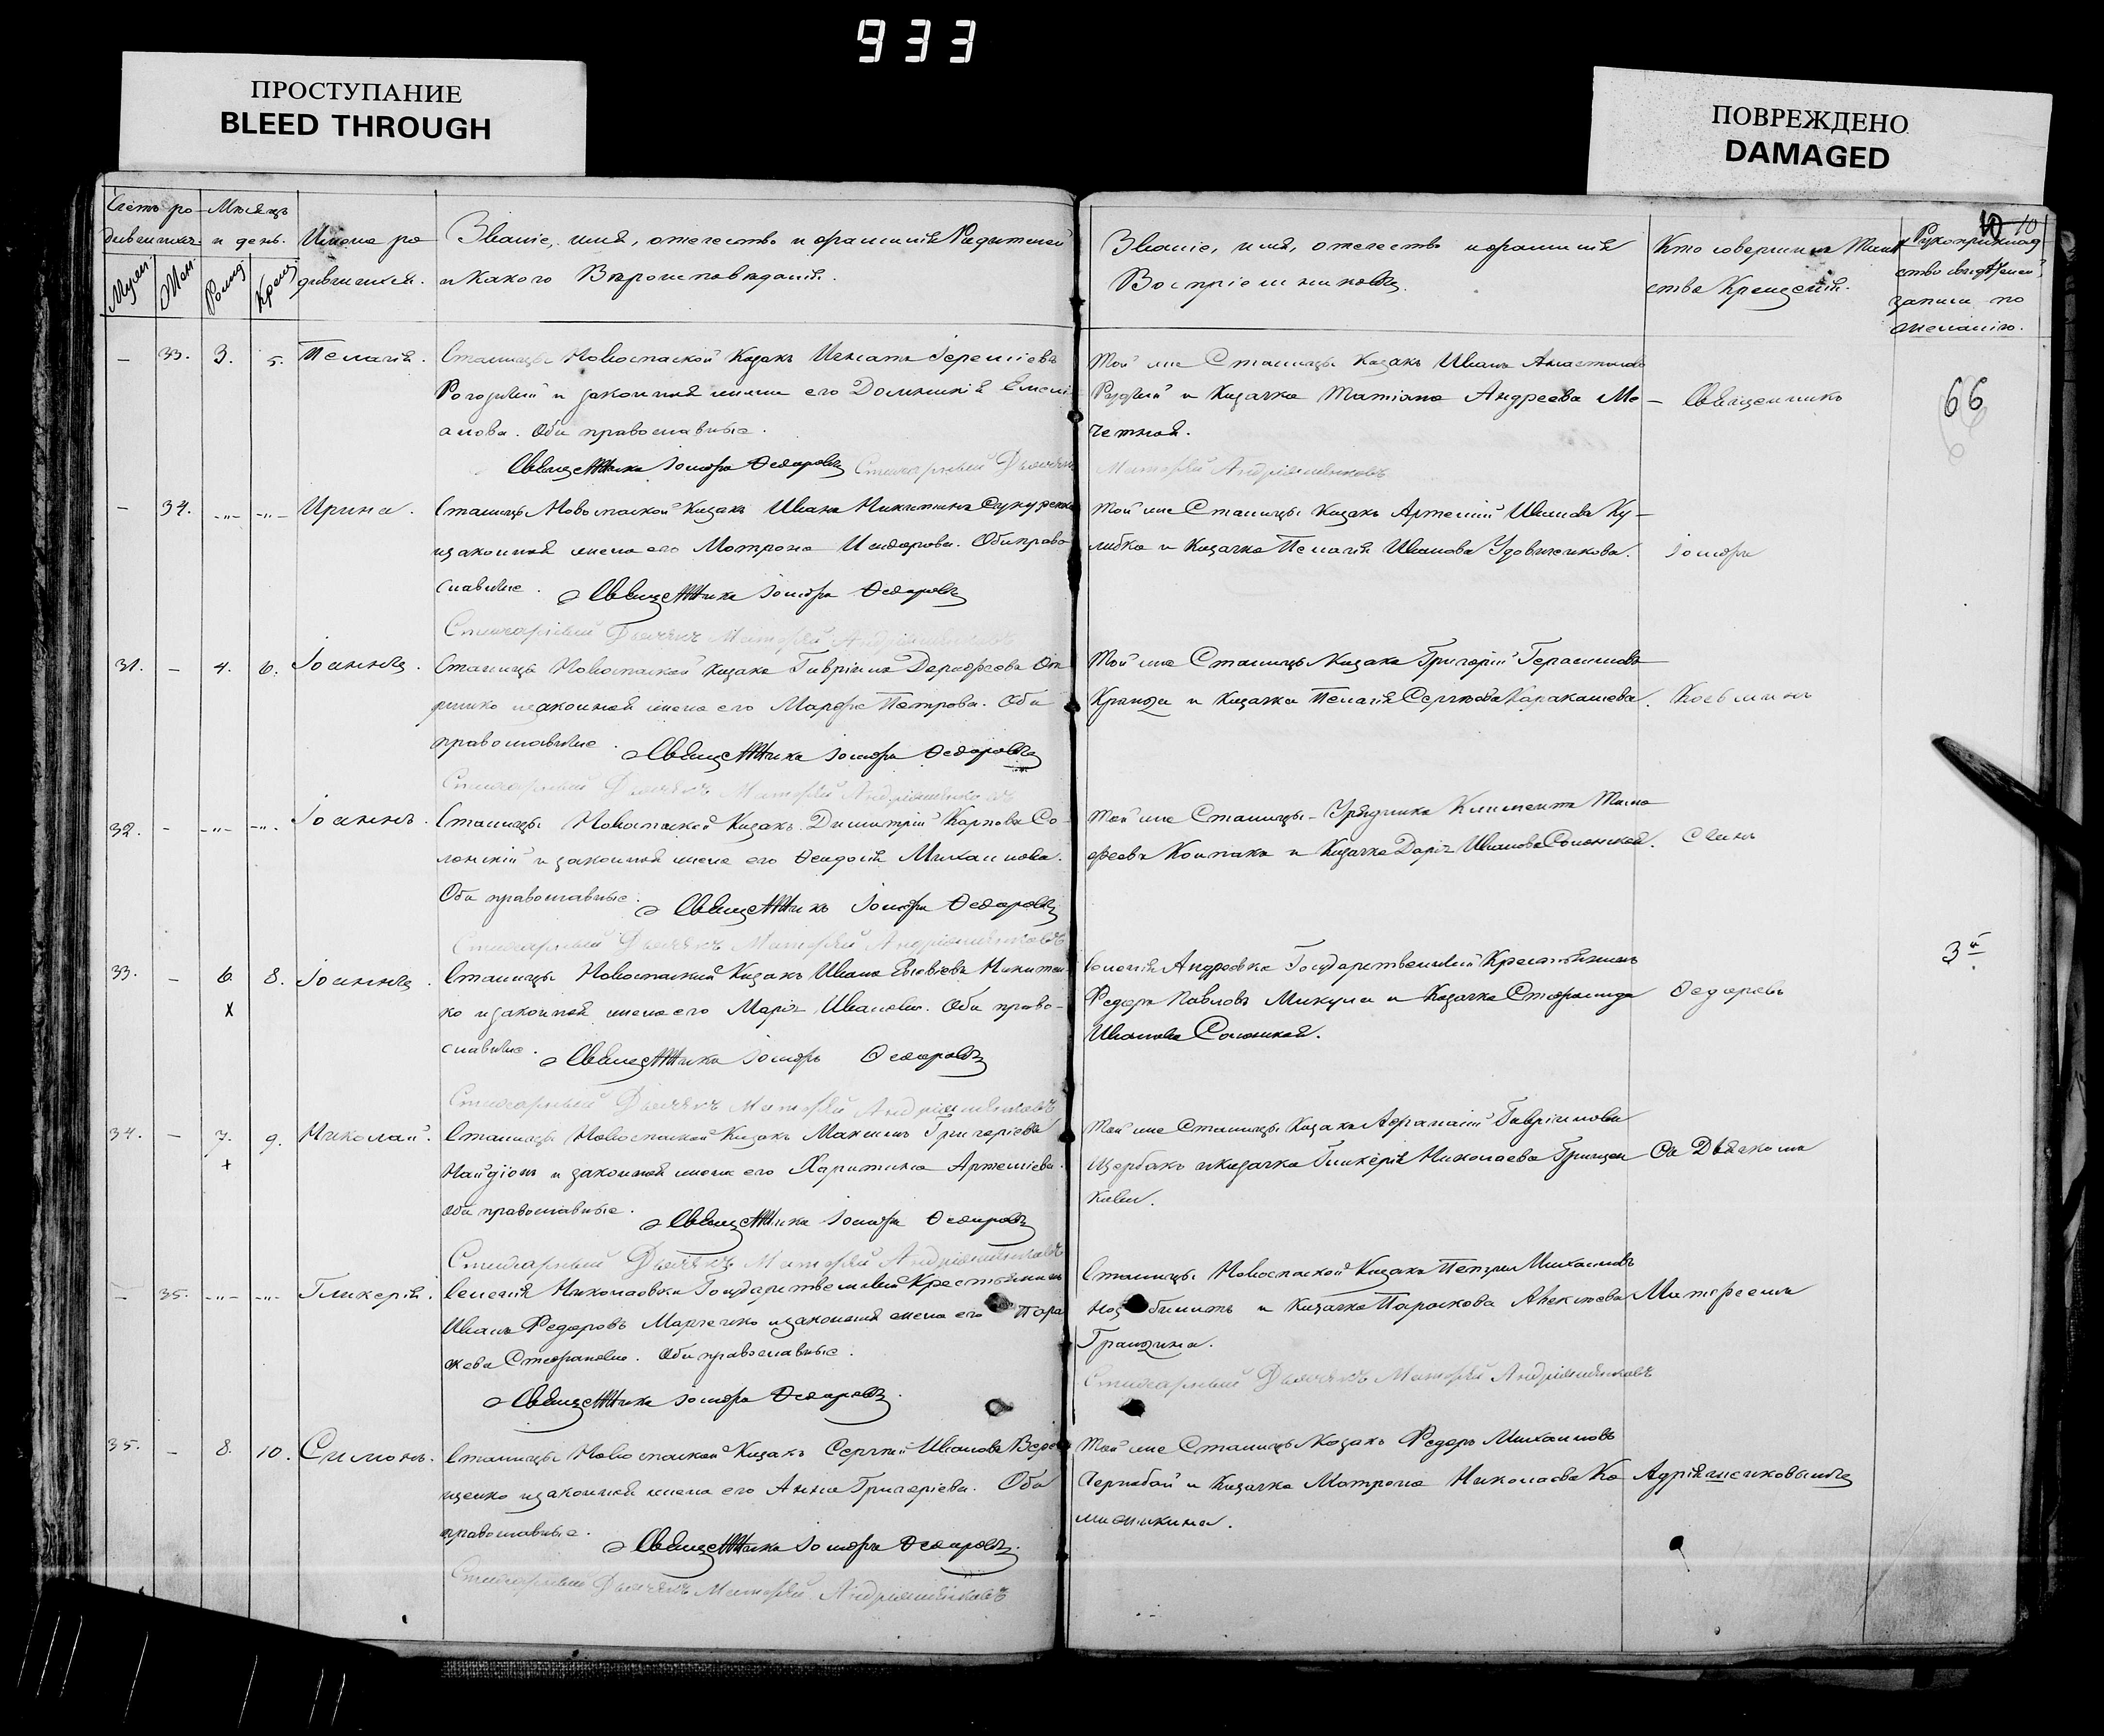 933
ПРОСТУПАНИЕ
BLEED THROUGH
ПОВРЕЖДЕНО
DAMAGED
Счетъ ро- Мѣсяцъ
дившихся. и день. Имена ро
Мужеск. Женск. Рожд. Крещ. дившихся.
Званіе, имя, отчество и фамилія Родителей
и какого Вѣроисповѣданія.
Званіе, имя, отчество и фамилія
Воспріемниковъ.
Кто совершилъ Таин
ство Крещенія.
10 10
Рукоприклад
ство свидѣтелей
записи по
желанію.
— 33. 3. 5. Пелагія. Станицы Новоспаской Казакъ Игнатъ Іереміевъ
и законная жена его Домникія Емелі
анова. Оба православные.
Священникъ Іосифъ Ѳедоровъ Стихарный Дьячекъ
Той же Станицы Казакъ Иванъ
и Казачка Татіана Андреева Ме
четная.
Матфей Андріяшенковъ
Священникъ
66
— 34. -"- -"- Ирина. Станицы Новоспаской Казакъ Иванъ Никитинъ
и законная жена его Матрона Исидорова. Оба право
славные. Священникъ Іосифъ Ѳедоровъ
Стихарный Дьячекъ Матфей Андріяшенковъ
Той же Станицы Казакъ Артемій Ивановъ Ку-
либка и Казачка Пелагія Иванова Удовиченкова.
Іосифъ
31. — 4. 6. Іоаннъ. Станицы Новоспаской Казакъ Гавріилъ Дорофеевъ
и законная жена его Марфа Петрова. Оба
православные. Священникъ Іосифъ Ѳедоровъ
Стихарный Дьячекъ Матфей Андріяшенковъ
Той же Станицы Казакъ Григорій Герасимовъ
и Казачка Пелагія Сергѣева Каракашева.
Косьминъ
32. - -"- -"- Іоаннъ. Станицы Новоспаской Казакъ Димитрій Карповъ Со
лонскій и законная жена его Ѳеодосія Михайлова.
Оба православные. Священникъ Іосифъ Ѳедоровъ
Стихарный Дьячекъ Матфей Андріяшенковъ
Той же Станицы - Урядникъ Климентъ Тимо
феевъ Колпакъ и Казачка Дарія Иванова Солонская.
сынъ
33. — 6. 8. Іоаннъ. Станицы Новоспаской Казакъ Иванъ Никитен
X
ко и законная жена его Марія Иванова. Оба право-
славные. Священникъ Іосифъ Ѳедоровъ
Стихарный Дьячекъ Матфей Андріяшенковъ
Селенія Андреевки Государственный Крестьянинъ
Федоръ Павловъ Микула и Казачка Стефанида
Иванова Солонская.
Ѳедоровъ
3й
34. — 7. 9. Николай. Станицы Новоспаской Казакъ Максимъ Григоріевъ
+
Найдіонъ и законная жена его Харитина Артеміева.
оба православные. Священникъ Іосифъ Ѳедоровъ
Стихарный Дьячекъ Матфей Андріяшенковъ
Той же Станицы Казакъ Афанасій Гавріиловъ
Щербакъ и казачка Гликерія Николаева Грищен
кова.
Съ Дьячкомъ
— 35. -"- -"- Гликерія. Селенія Николаевки Государственный Крестьянинъ
Иванъ Федоровъ Марченко и законная жена его Пара
скева Стефанова. Оба православные.
Священникъ Іосифъ Ѳедоровъ.
Станицы Новоспаской Казакъ Петръ Михайловъ
и Казачка Параскова Алексѣева
Стихарный Дьячекъ Матфей Андріяшенковъ
Матфеемъ
35. — 8. 10. Симонъ. Станицы Новоспаской Казакъ Сергѣй Ивановъ Вере
щенко и законная жена его Анна Григоріева. Оба
православные. Священникъ Іосифъ Ѳедоровъ.
Стихарный Дьячекъ Матфей Андріяшенковъ
Той же Станицы Казакъ Федоръ Михайловъ
и Казачка Матрона Николаева Ко
Адріяшенковымъ